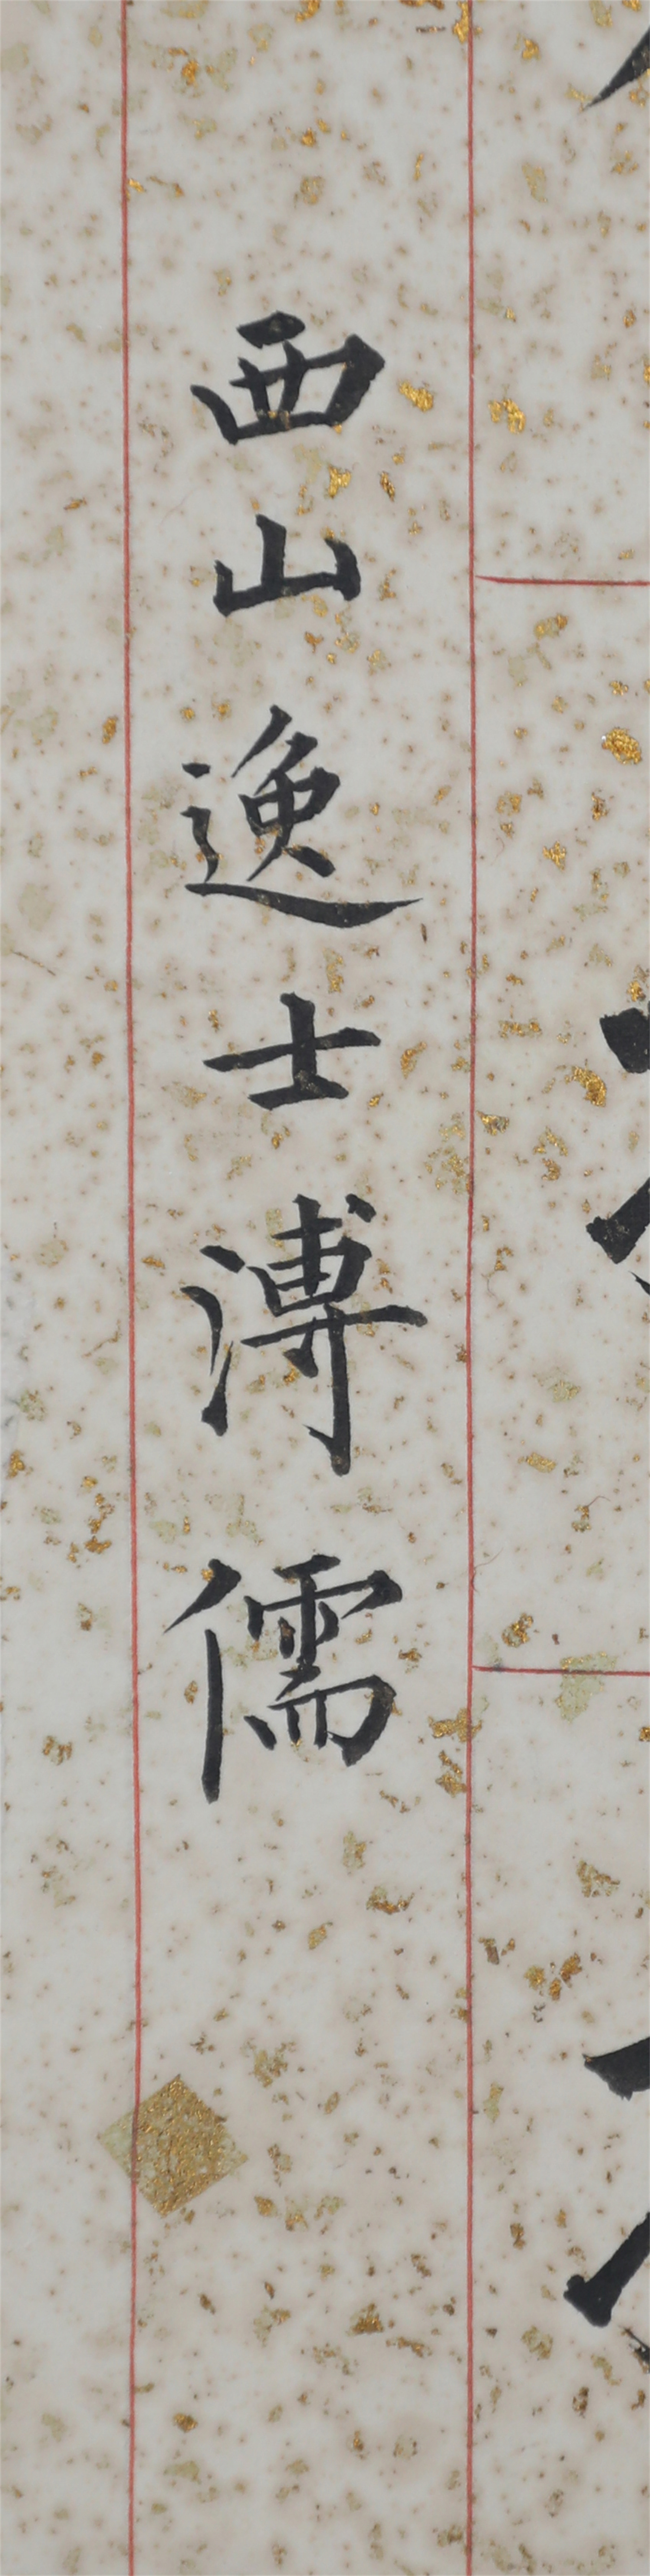 西山逸士溥儒